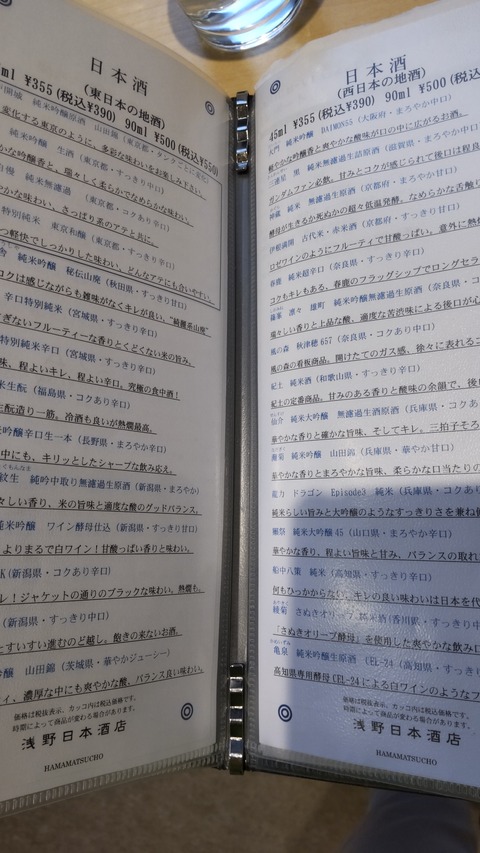 日本酒
(東日本の地酒)
ml ¥355(税込¥390) 90ml ¥500(税込¥550)
純米吟醸原酒 山田錦 (東京都・タンクごとに変化)
変化する東京のように、多彩な味わいをお楽しみ下さい。
純米吟醸 生酒 (東京都・すっきり中口)
かな吟醸香と、瑞々しく柔らかでなめらかな味わい。
自慢 純米無濾過 (東京都・コクあり辛口)
やかな味わい、さっぱり系のアテと共に。
特別純米 東京和醸 (東京都・すっきり中口)
つ軽快でしっかりした味わい、どんなアテにも良いやすい。
舎 純米吟醸 秘伝山廃 (秋田県・すっきり甘口)
コクは感じながらも雑味がなくキレが良い、"綺麗系山廃"
辛口特別純米 (宮城県・すっきり辛口)
ぎないフルーティーな香りとくどくない米の旨み。
特別純米辛口 (宮城県・すっきり辛口)
味、程よいキレ、程よい辛口。究極の食中酒!
米生酛 (福島県・コクあり中口)
生酛造り一筋。冷酒も良いが熱燗最高。
米吟醸辛口生一本 (長野県・まろやか辛口)
中にも、キリッとしたシャープな飲み応え。
紋生 純吟中取り無濾過生原酒 (新潟県・まろやか)
々しい香り、米の旨味と適度な酸のグッドバランス。
純米吟醸 ワイン酵母仕込 (新潟県・すっきり甘口)
よりまるで白ワイン!甘酸っぱい香りと味わい。
K (新潟県・コクあり辛口)
レ!ジャケットの通りのブラックな味わい。熱燗も。
(新潟県・すっきり中口)
とすいすい進むのど越し。飽きの来ないお酒。
醸 山田錦 (茨城県・華やかジューシー)
ィ、濃厚な中にも爽やかな酸。バランス良い味わい。
価格は税抜表示、カッコ内は税込価格です。
時期によって商品が変わる場合があります。
浅野日本酒店
HAMAMATSUCHO
日本酒
(西日本の地酒)
45ml ¥355(税込¥390) 90ml ¥500(税込
大門 純米吟醸 DAIMON55 (大阪府・まろやか中口)
鮮やかな吟醸香と爽やかな酸味が口の中に広がるお酒。
三連星 黒 純米無濾過生詰原酒 (滋賀県・まろやか中口)
ガンダムファン必飲。甘みとコクが感じられて後口は程良
神蔵 純米 無濾過生原酒 (京都府・まろやか甘口)
酵母が生きるか死ぬかの超々低温発酵。なめらかな舌触り
伊根満開 古代米・赤米酒 (京都府・すっきり甘口)
ロゼワインのようにフルーティで甘酸っぱい。意外に熱燗
春鹿 純米超辛口 (奈良県・すっきり辛口)
コクもキレもある。春鹿のフラッグシップでロングセラ
篠峯 凛々 雄町 純米吟醸無濾過生原酒 (奈良県・コク
瑞々しい香りと上品な酸、適度な苦渋味による後口が心
風の森 秋津穂657 (奈良県・コクあり中口)
風の森の看板商品。開けたてのガス感、徐々に表れるコ
紀土 純米酒 (和歌山県・すっきり中口)
紀土の定番商品。甘みのある香りと酸味の余韻で、後
仙介 純米大吟醸 無濾過生酒原酒 (兵庫県・コクあ
華やかな香りと確かな旨味、そしてキレ。三拍子そろ
菊 純米吟醸 山田錦 (兵庫県・華やか甘口)
華やかな香りとまろやかな旨味、柔らかな口当たりの
龍力 ドラゴン Episode3 純米 (兵庫県・コクあり
純米らしい旨味と大吟醸のようなすっきりさを兼ね備
獺祭 純米大吟醸45 (山口県・まろやか中口)
華やかな香り、程よい旨味と甘み、バランスの取れ
船中八策 純米 (高知県・すっきり辛口)
何もひっかからない、キレの良い味わいは日本を代
綾菊 さぬきオリーブ純米酒 (香川県・すっきり中
「さぬきオリーブ酵母」を使用した爽やかな飲み口
亀泉 純米吟醸生原酒 (EL-24 (高知県・すっき
高知県専用酵母(EL-24による白ワインのようなフ
価格は税抜表示、カッコ内は税込価格です。
時期によって商品が変わる場合があります。
浅野日本酒店
HAMAMATSUCHO